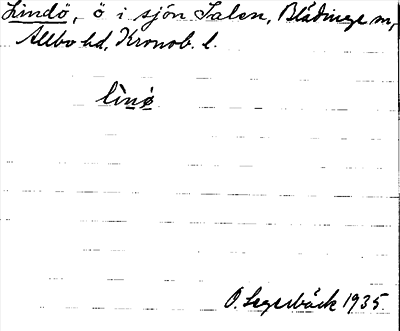 Lindö, ö i sjön Salen, Blädinge sn,
Allbo hd, Kronob. l.
lìnø
O. Segerbäck 1935